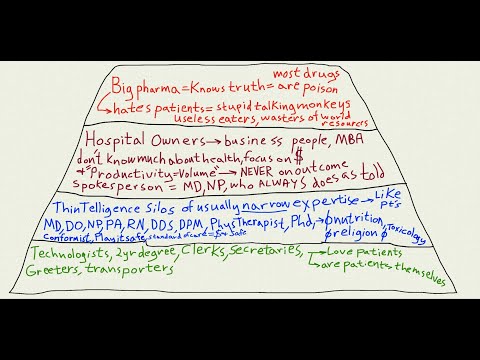 most drugs
Big pharma=Knows truth= are poison
hates patients= stupid talking monkeys
useless eaters, wasters of world resources
Hospital Owners→ business people, MBA
don't know much about health, focus on $
*"Productivity=Volume"→ NEVER on outcome
spokesperson = MD, NP, who ALWAYS does as told
ThinTelligence silos of usually narrow expertise → Like pts
MD, DO, NP, PA, RN, DDS, DPM, Phys Therapist, PhD,→ Ø nutrition
Conformist, Play it safe, standard of care = $ for safe
Ø religion Ø Toxicology
Technologists, 2yr degree, Clerks, Secretaries, → Love patients
Greeters, transporters → are patients themselves